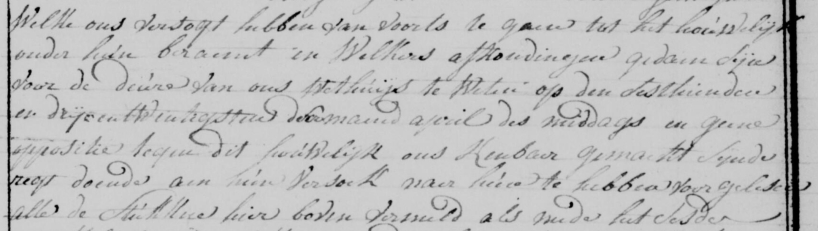 Welke ons versogt hebben van voorts te gaen tot het houwelijk
onder hun beraemt en Welkers afkondingen gedaen sijn
voor de deure van ons Gethuijs te Weten op den sesthienden
en drijentwintigsten der maend april des middags en geene
oppositie tegen dit houwelijk ons Kenbaer gemaekt sijnde
regt doende aen hun versoek naer hun te hebben voorgelesen
alle de stukken hier boven vermeld als mede het sesde